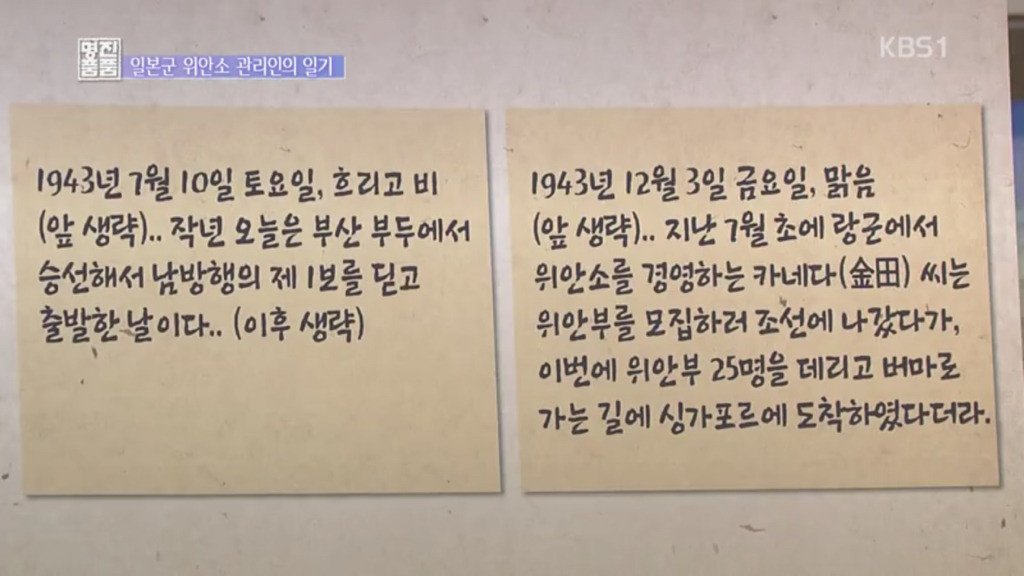 진품
명품
일본군 위안소 관리인의 일기
KBS1
1943년 7월 10일 토요일, 흐리고 비
(앞 생략).. 작년 오늘은 부산 부두에서
승선해서 남방행의 제 1보를 딛고
출발한 날이다.. (이후 생략)
1943년 12월 3일 금요일, 맑음
(앞 생략).. 지난 7월 초에 랑군에서
위안소를 경영하는 카네다(金田) 씨는
위안부를 모집하러 조선에 나갔다가,
이번에 위안부 25명을 데리고 버마로
가는 길에 싱가포르에 도착하였다더라.